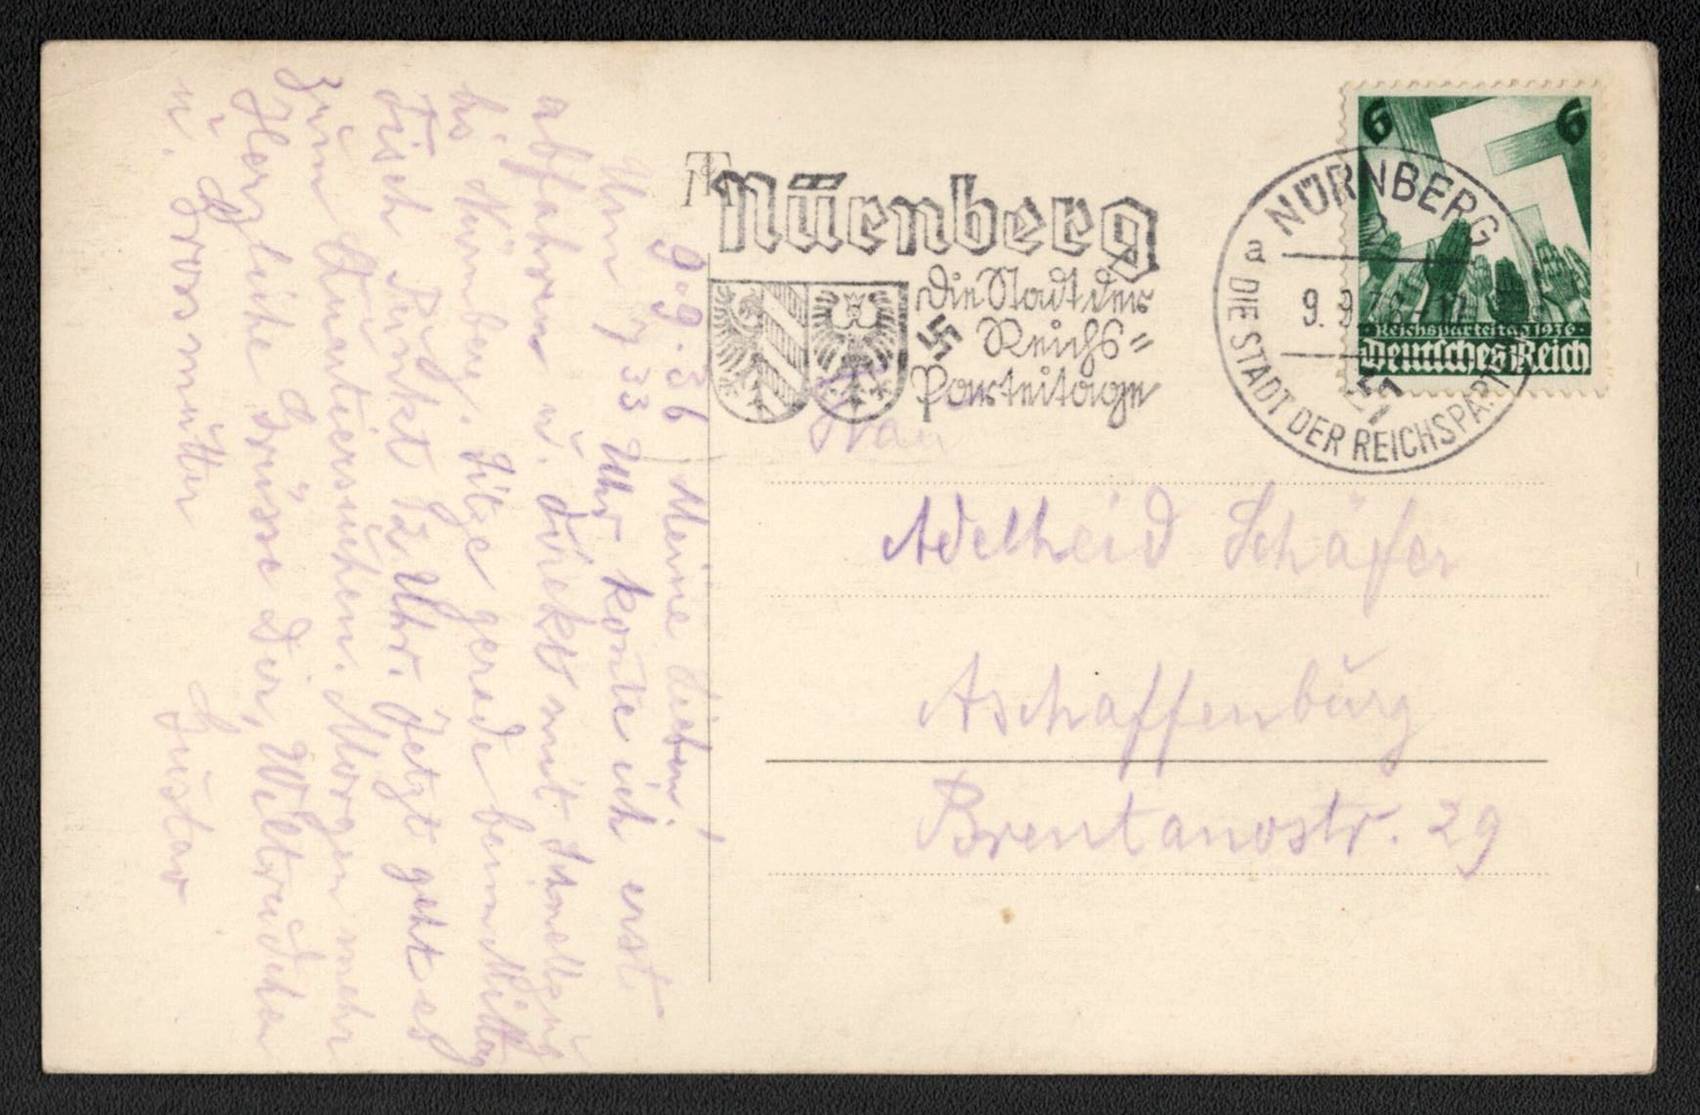 9.9.36. Meine Lieben!
Um 7 33 Uhr konte ich erst
abfahren u. direkt mit Schnellzug
bis Nürnberg. Sitze gerade beim Mittag
Tisch Punkt 12 Uhr. Jetzt geht es
zum Quartiersuchen. Morgen mehr
Herzliche Grüsse Dir,
u. Grossmutter
Gustav
Nürnberg
Die Stadt der
Reichs=
Parteitage
NÜRNBERG
2
a
9.9.36-12
DIE STADT DER REICHSPART
6 6
Reichsparteitag 1936
Deutsches Reich
Frau
Adelheid Schäfer
Aschaffenburg
Brentanostr. 29